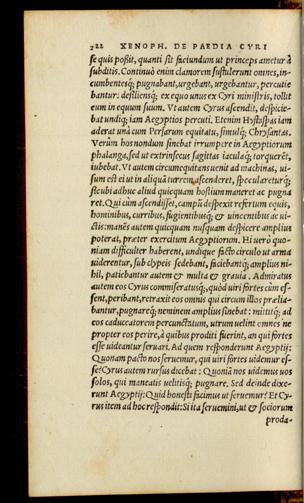 322 XENOPH. DE PAEDIA CYRI
se quis poßit, quanti sit faciundum ut princeps ametur à
subditis. Continuò enim clamorem sustulerunt omnes, in-
cumbentesq́; pugnabant, urgebant, urgebantur, percutie
bantur: desiliensq́; ex equo unus ex Cyri ministris, tollit
eum in equum suum. Vt autem Cyrus ascendit, despicie-
bat undiq; iam Aegyptios percuti. Etenim Hystaspas iam
aderat unà cum Persarum equitatu, simulq́; Chrysantas.
Verùm hos nondum sinebat irrumpere in Aegyptiorum
phalanga, sed ut extrinsecus sagittas iaculaq́; torquerēt,
iubebat. Vt autem circumequitans uenit ad machinas, ui-
sum est ei ut in aliquā turrem ascenderet, specularetur q́;
sicubi adhuc aliud quicquam hostium maneret ac pugna
ret. Qui cùm ascendisset, campū despexit refertum equis,
hominibus, curribus, fugientibusq́; & uincentibus ac ui-
ctis: manēs autem quicquam nusquam despicere amplius
poterat, præter exercitum Aegyptiorum. Hi uero quo-
niam difficulter haberent, undique facto circulo ut arma
uiderentur, sub clypeis sedebant, faciebantq́; amplius ni-
hil, patiebantur autem & multa & grauia. Admiratus
autem eos Cyrus commiseratusq́;, quòd uiri fortes cùm es-
sent, perirent, retraxit eos omnis qui circum illos prælia-
bantur, pugnareq́; neminem amplius sinebat: mittitq́; ad
eos caduceatorem percunctatum, utrum uelint omnes ne
propter eos perire, à quibus proditi fierint, an qui fortes
esse uideantur seruari. Ad quem responderunt Aegyptij:
Quonam pacto nos seruemur, qui uiri fortes uidemur es-
se? Cyrus autem rursus dicebat: Quoniā nos uidemus uos
solos, qui maneatis uelitisq́; pugnare. Sed deinde dixe-
runt Aegyptij: Quid honesti facimus ut seruemur? Et Cy-
rus item ad hoc respondit: Si ita seruemini, ut & sociorum
proda-